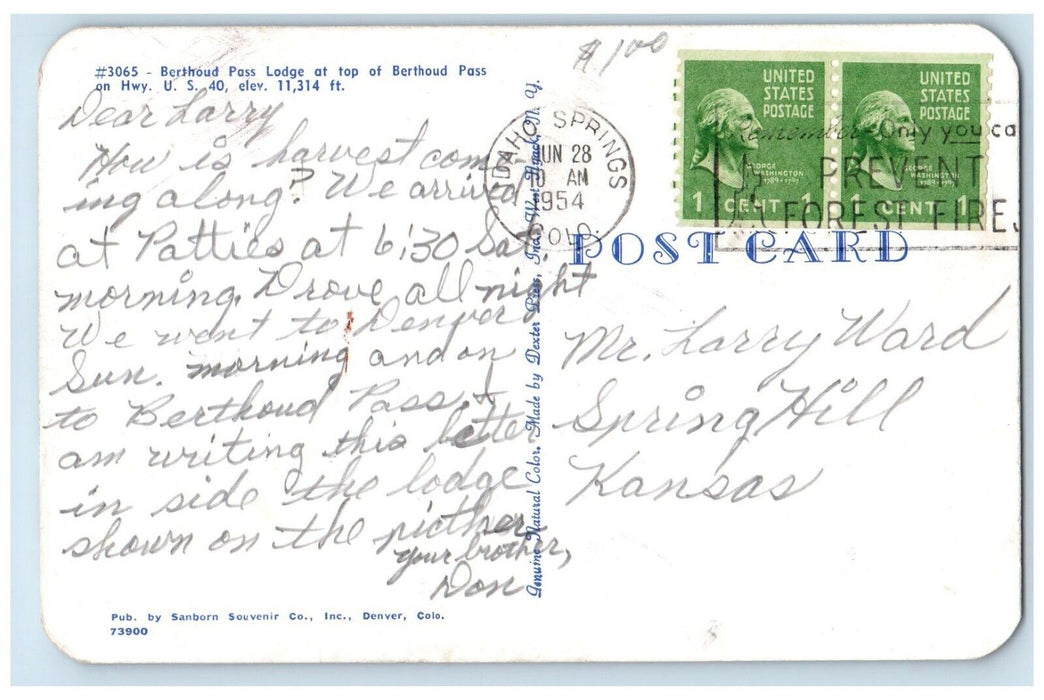 #3065 - Berthoud Pass Lodge at top of Berthoud Pass
on Hwy. U. S. 40, elev. 11,314 ft.
$1.00
Dear Larry
How is harvest com
ing along? We arrived
at Patties at 6:30 Sat.
morning. Drove all night
We went to Denver
Sun. morning and on
to Berthoud Pass. I
am writing this letter
in side the lodge
shown on the picther
your brother,
Don
Pub. by Sanborn Souvenir Co., Inc., Denver, Colo.
73900
Genuine Natural Color. Made by Dexter Press, Inc. West Nyack, N. Y.
IDAHO SPRINGS
JUN 28
10 AM
1954
COLO.
UNITED
STATES
POSTAGE
GEORGE
WASHINGTON
1789-1797
1 CENT 1
UNITED
STATES
POSTAGE
GEORGE
WASHINGTON
1789-1797
1 CENT 1
Remember- Only you ca
PREVENT
FOREST FIRES
POST CARD
Mr. Larry Ward
Spring Hill
Kansas